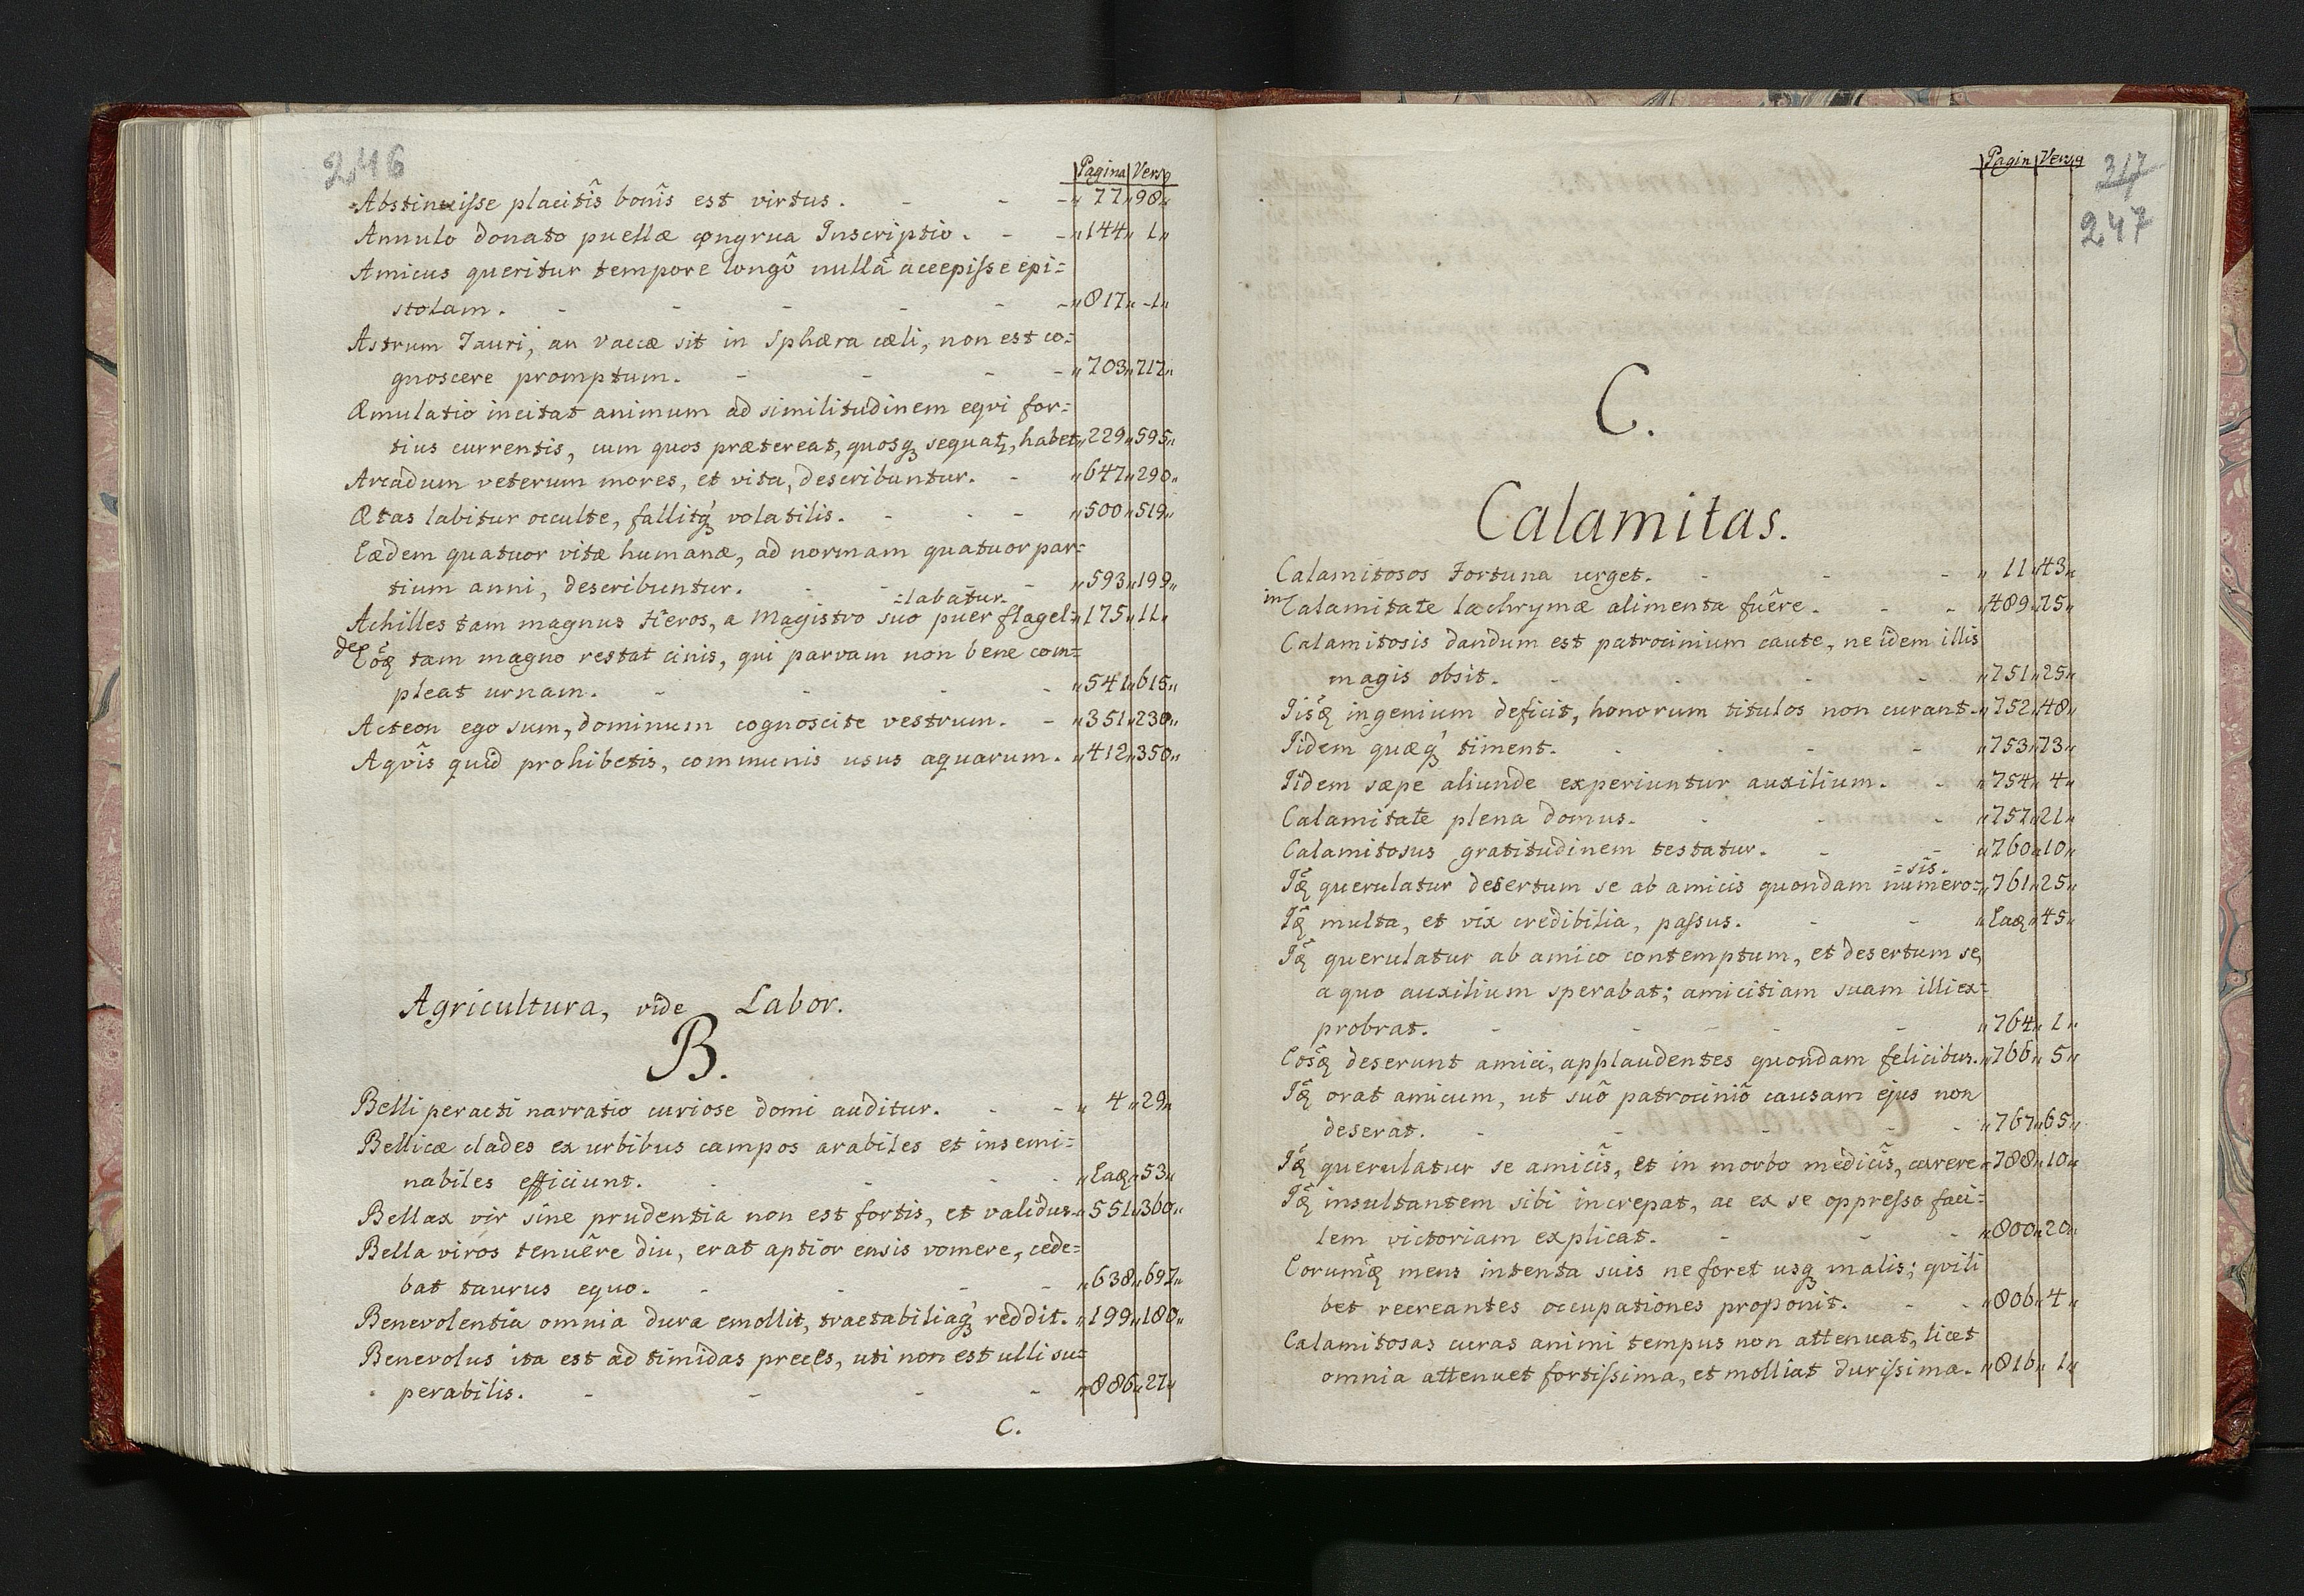 246
Pagina Versq
Abstinuisse placitîs bonîs est virtus. - - - „ 77 „ 98 „
Annulo donato puellæ congrua Inscriptio. - - „ 144 „ 1 „
Amicus queritur tempore longô nullâ accepisse epi=
stolam. - - - - - „ 817 „ -1 „
Astrum Tauri, an vaccæ sit in Sphæra cæli, non est co=
gnoscere promptum. - - - - „ 703 „ 717 „
Æmulatio incitat animum ad similitudinem eqvi for=
tius currentis, cum quos prætereat, quosqꝫ sequatꝫ, habet „ 229 „ 595 „
Arcadum veterum mores, et vita, describuntur. - „ 647 „ 290 „
Ætas labitur occulte, fallitqꝫ volatilis. - - - „ 500 „ 519 „
Eædem quatuor vitæ humanæ, ad normam quatuor par=
tium anni, describuntur. - - - „ 593 „ 199 „
=labatur.
Achilles tam magnus Heros, a Magistro suo puer flagel= „ 175 „ 11 „
de Eôꝫ tam magno restat cinis, qui parvam non bene com=
pleat urnam. - - - - „ 541 „ 615 „
Acteon ego sum, dominum cognoscite vestrum. - „ 351 „ 230 „
Aqvîs quid prohibetis, communis usus aquarum. „ 412 „ 350 „
Agricultura, vide Labor.
B.
Belli peracti narratio curiose domi auditur. - - „ 4 „ 29 „
Bellicæ clades ex urbibus campos arabiles et insemi=
nabiles efficiunt. - - - - „ Eaꝫ „ 53 „
Bellax vir sine prudentia non est fortis, et validus. „ 551 „ 360 „
Bella viros tenuêre diu, erat aptior ensis vomere, cede=
bat taurus equo. - - - - „ 638 „ 697 „
Benevolentia omnia dura emollit, tractabiliaqꝫ reddit. „ 199 „ 180 „
Benevolus ita est ad timidas preces, uti non est ulli su=
perabilis. - - - - „ 886 „ 27 „
C.
Pagin Versq
247
247
C.
Calamitas.
Calamitosos Fortuna urget. - - - „ 11 „ 43 „
in Calamitate lachrymæ alimenta fuêre. - - „ 489 „ 75 „
Calamitosis dandum est patrocinium caute, ne idem illis
magis obsit. - - - - „ 751 „ 25 „
Iisꝫ ingenium deficit, honorum titulos non curant. „ 752 „ 48 „
Iidem quæqꝫ timent. - - - - „ 753 „ 73 „
Iidem sæpe aliunde experiuntur auxilium. - „ 754 „ 4 „
Calamitate plena domus. - - - „ 757 „ 21 „
Calamitosus gratitudinem testatur. - - „ 760 „ 10 „
=sîs.
Iꝫ querulatur desertum se ab amicis quondam numero= „ 761 „ 25 „
Iꝫ multa, et vix credibilia, passus. - - „ Eaꝫ „ 45 „
Iꝫ querulatur ab amico contemptum, et desertum se,
a quo auxilium sperabat; amicitiam suam illi ex=
probrat. - - - - - „ 764 „ 1 „
Eosꝫ deserunt amici, applaudentes quondam felicibus. „ 766 „ 5 „
Iꝫ orat amicum, ut suô patrociniô causam ejus non
deserat. - - - - - „ 767 „ 65 „
Iꝫ querulatur se amicîs, et in morbo medicîs, carere „ 788 „ 10 „
Iꝫ insultantem sibi increpat, ac ex se oppresso faci=
lem victoriam explicat. - - - „ 800 „ 20 „
Eorumꝫ mens intenta suis ne foret usqꝫ malis; qvili
bet recreantes occupationes proponit. - - „ 806 „ 4 „
Calamitosas curas animi tempus non attenuat, licet
omnia attenuet fortissima, et molliat durissima. „ 816 „ 1 „